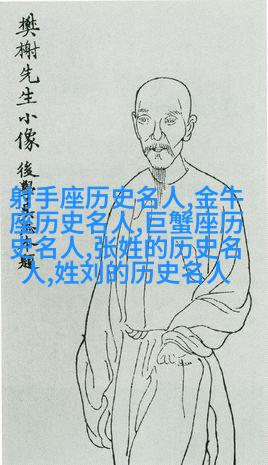 樊榭先生小像
後學
射手座历史名人,金牛
座历史名人,巨蟹座历
史名人,张姓的历史名
人,姓刘的历史名人